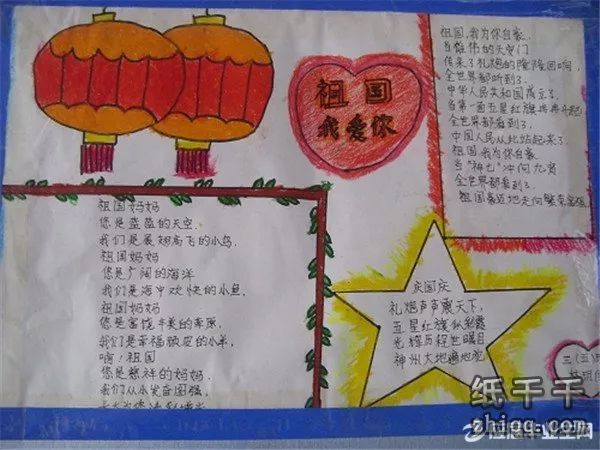 祖国
我爱你
祖国,我为你自豪
当雄伟的天安门
传来了礼炮的隆隆回响,
全世界都听到了.
中华人民共和国成立了.
当第一面五星红旗冉冉升起
全世界都看到了.
中国人民从此站起来了.
祖国,我为你自豪.
当"神七"冲向九霄
全世界都看到了.
祖国豪迈地走向繁荣富强
祖国妈妈
您是蓝蓝的天空.
我们是展翅高飞的小鸟,
祖国妈妈
您是广阔的海洋
我们是海中欢快的小鱼,
祖国妈妈
您是富饶丰美的草原,
我们是幸福顽皮的小羊,
啊!祖国
您是慈祥的妈妈,
我们从小发奋图强,
庆国庆
礼炮声声震天下,
五星红旗似彩霞
光辉历程世瞩目
神州大地遍地花
三(五)
纸千千
zhiqq.com